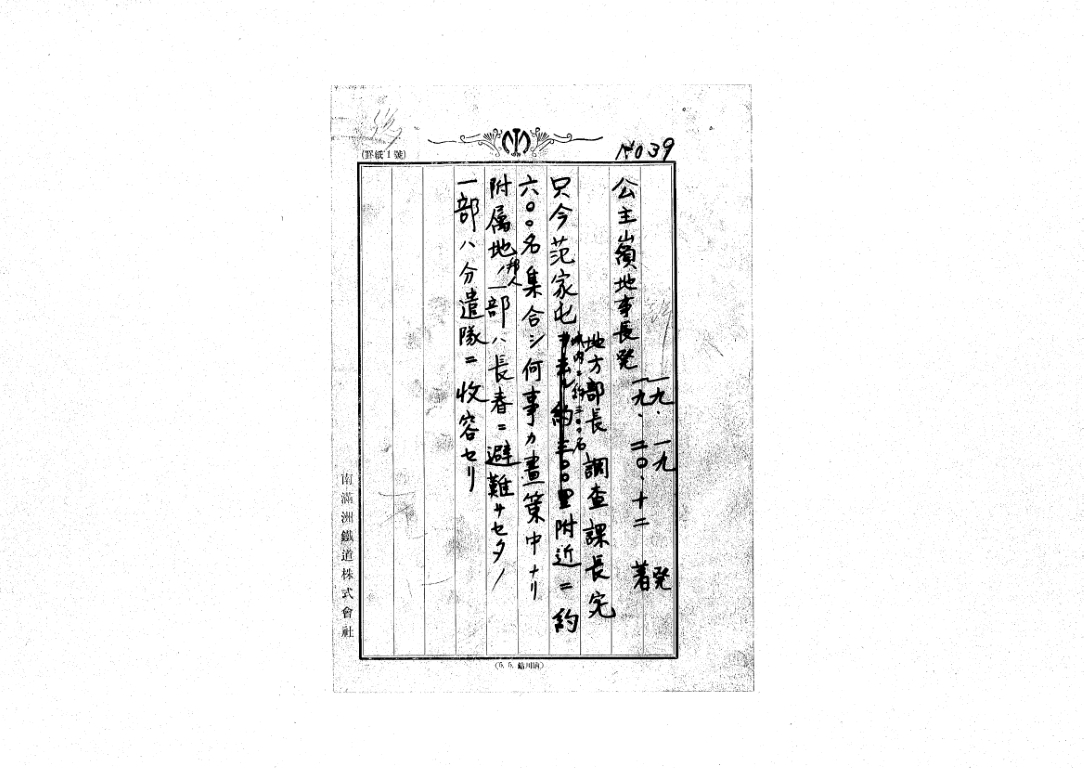 No 39
(罫紙1號)
一九、一九 発
一九、二〇、十二 着
公主嶺地事長発
地方部長 調査課長宛
只今范家屯城内ニ約三〇〇名附近ニ約
六〇〇名集合シ何事カ畫策中ナリ
附属地ノ邦人一部ハ長春ニ避難サセタノ
一部ハ分遣隊ニ收容セリ
南滿洲鐵道株式會社